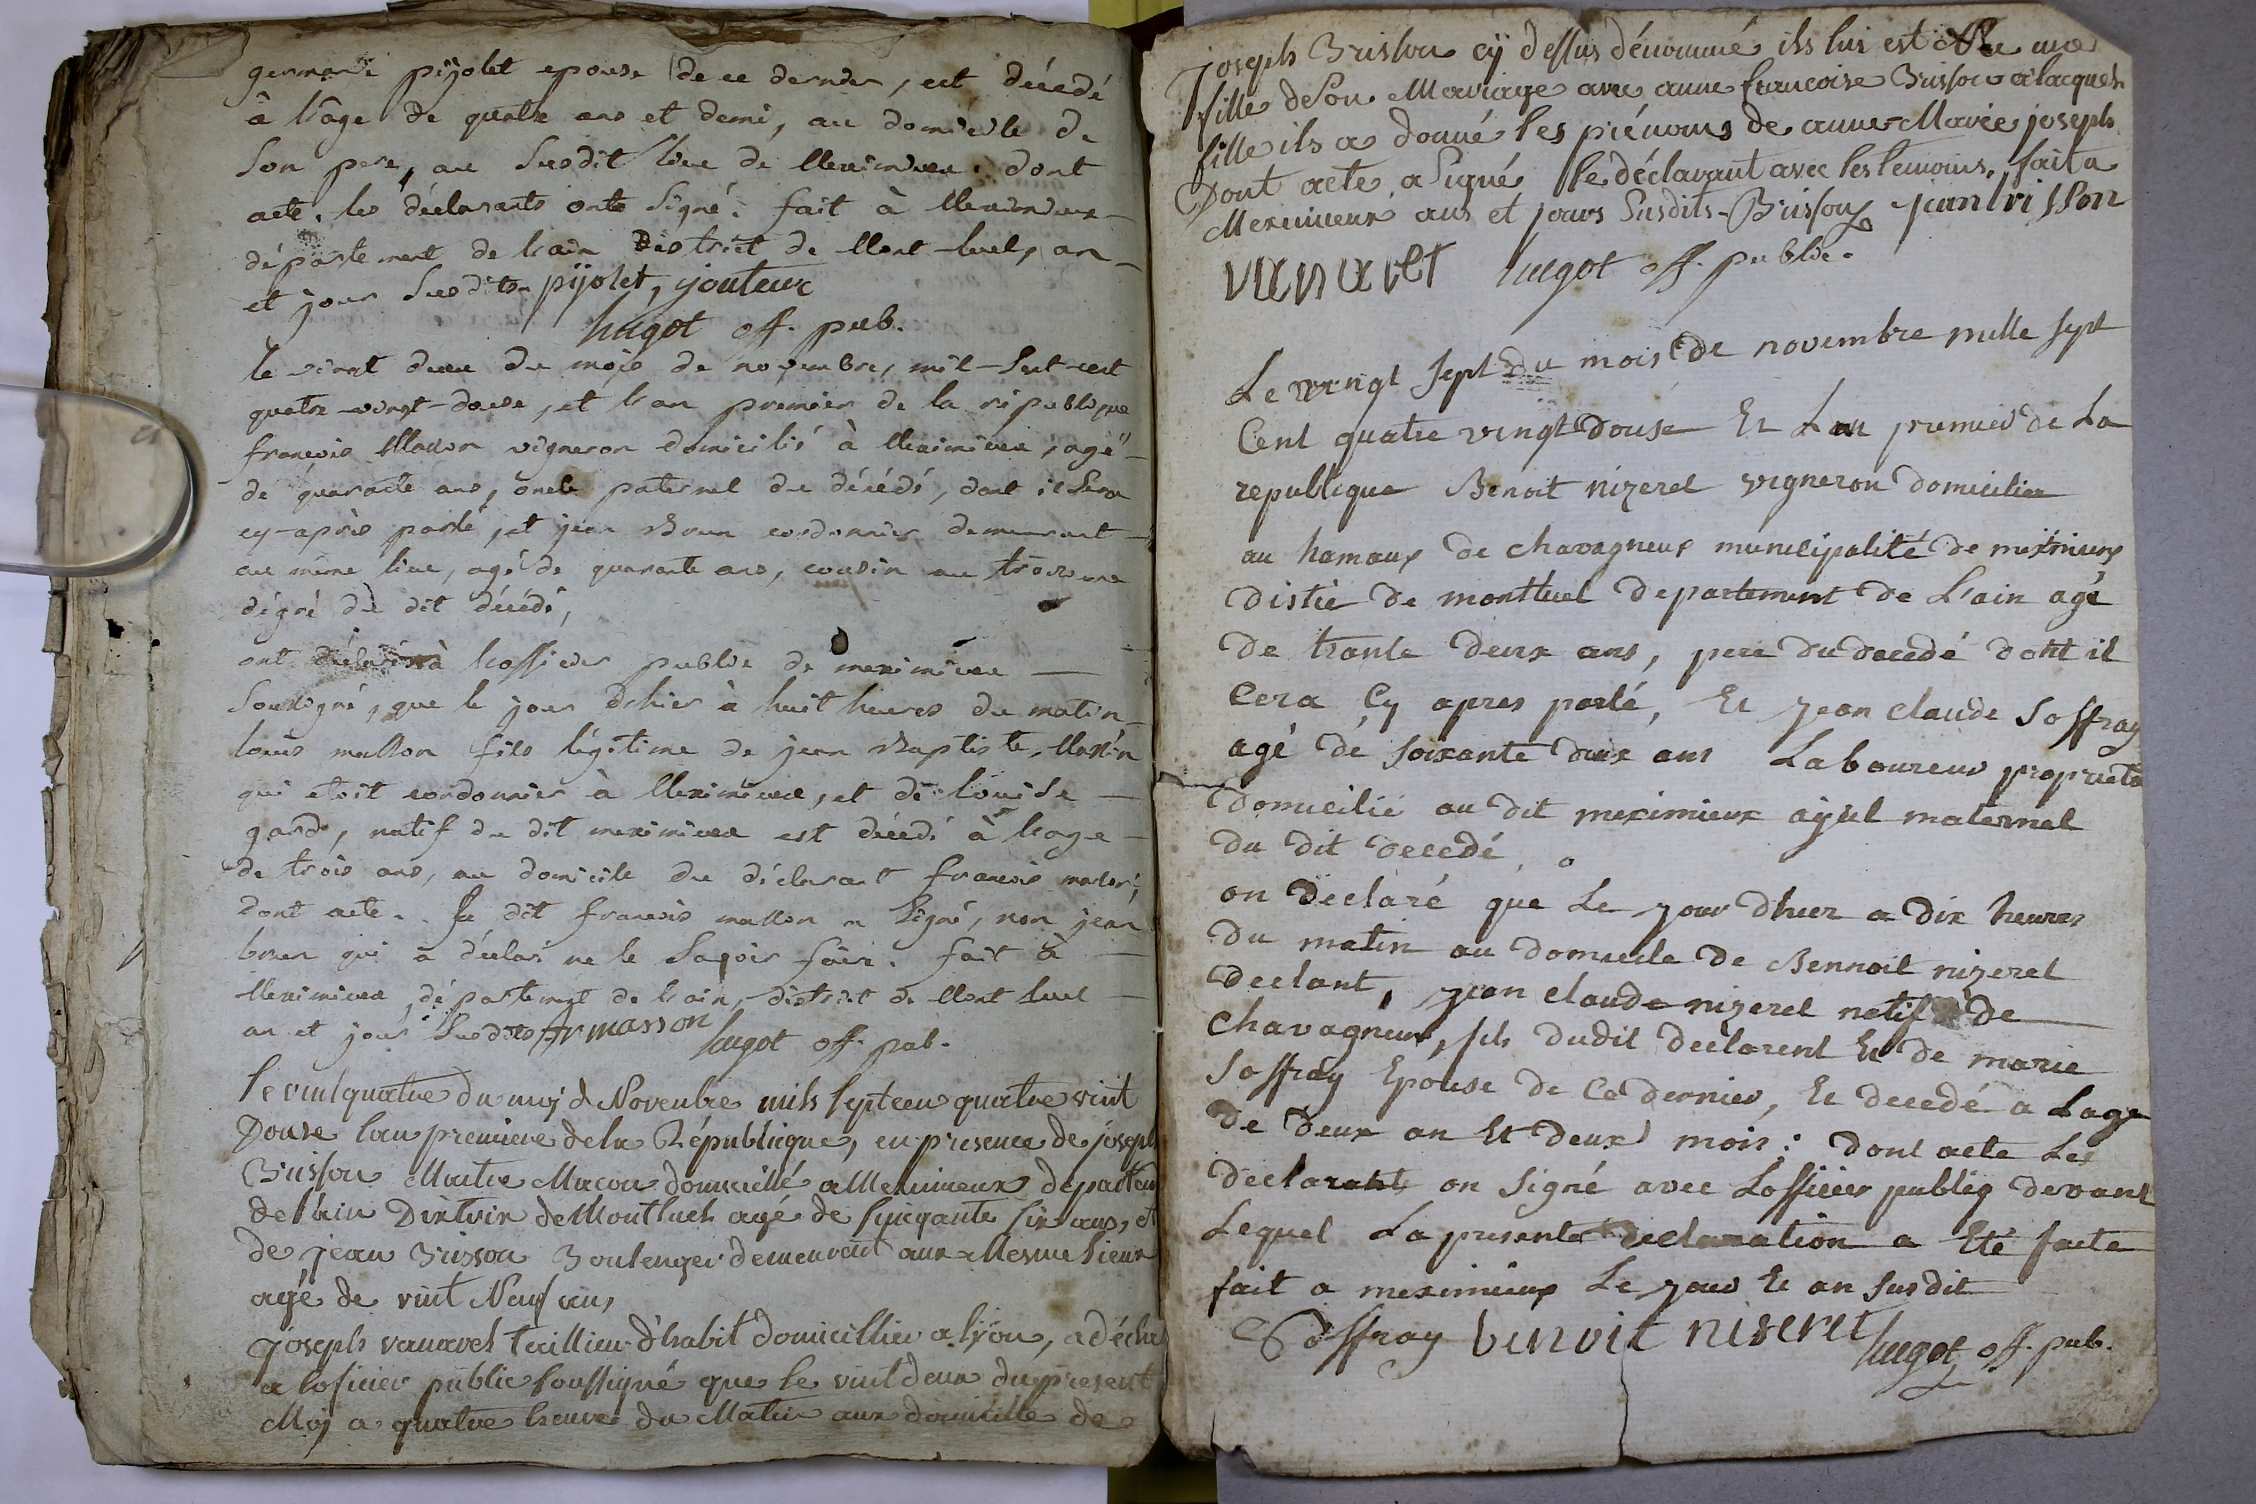 germaine pijolet epouse de ce dernier, est décedé
à l'âge de quatre ans et demi, au domicile de
son pere, au susdit lieu de Meximieux. dont
acte. les déclarants onts signé. fait à Meximieux
département de l'ain District de Mont-luel, an
et jour susdits. pijolet, jouteux
hugot off. pub.
le vingt deux du mois de novembre, mil-sept-cent
quatre-vingt-douse, et l'an premier de la république
francois Masson vigneron domicilié à Meximieux, agé
de quarante ans, oncle paternel du décédé, dont il sera
cy-après parlé, et jean Brun cordonnier demeurant
au même lieu, agé de quarante ans, cousin au troisieme
dégré du dit décédé,
ont déclaré à l'officier public de meximieux
soussigné, que le jour d'hier à huit heures du matin
louis masson fils légitime de jean Baptiste Masson
qui etoit cordonnier à Meximieux, et de louise
gard, natif du dit meximieux est décédé à l'age
de trois ans, au domicile du déclarant francois masson,
dont acte. Le dit francois masson a signé, non jean
brun qui a déclaré ne le savoir faire. fait à
Meximieux, département de l'ain, district de Mont luel
an et jour susdits fr masson hugot off. pub.
le vint quatre du moy d Novenbre mils septcen quatre vint
Douse lan premiere dela République, en presence de joseph
Brisson Maitre Macon domicillié a Meximieux départem
de lain Distrin de Montluel agé de sinqante six ans, et
de jean Brisson Boulenger demeurant aux Mesme lieux
agé de vint Neuf ans,
joseph vanavel taillieur d'habit domicillier a lyon, a décla
a loficier public soussigné que le vint deux du present
Moy a quatre heures du Matin aux domicille de
joseph Brisson cy dessus dénommé ils lui est née une
fille de son Mariage avec anne francoise Brisson a laquelle
fille ils a donné les prénoms de anne Marie joseph
Dont acte a signé le déclarant avec les temoins. fait a
Meximieux ans et jours susdits. Brisson jean brisson
vanavel hugot off. public.
Le vingt sept du mois de novembre mille sept
Cent quatre vingt douse Et Lan premier de La
republique Benoit nizeret vigneron domicilier
au hamaux de chavagneux municipalité de meximieux
distié de montluel departement de L'ain agé
de trante deux ans, pere du decedé dont il
Cera Cy apres parlé, Et jean claude Soffray
agé de soixante deux ans Laboureur proprieta
domicilié au dit meximieux ayul maternel
du dit decedé,
on declaré que Le jour dhier a dix heures
du matin au domicile de Bennoit nizeret
declant, jean claude nizeret natif de
chavagneux, fils dudit declarent Et de marie
Soffray Epouse de Ce dernier, Et decedé a Lage
de deux an Et deux mois; dont acte Les
declarants on signé avec Lofficier publiq devant
Lequel La presente declaration a Eté faite
fait a meximieux Le jour Et an susdit
Soffray benoit niseret hugot off. pub.